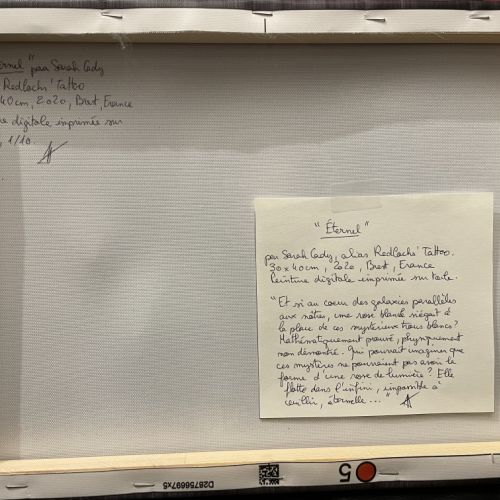 ernel" par Sarah Cady
Redlachs' Tattoo
40cm, 2020, Brest, France
re digitale imprimée sur
, 1/10.
"Éternel"
par Sarah Cady, alias Redlachs' Tattoo.
30x40cm, 2020, Brest, France
Peinture digitale imprimée sur toile.
"Et si au coeur des galaxies parallèles
aux nôtres, une rose blanche siégeait à
la place de ces mystérieux trous blancs?
Mathématiquement prouvé, physiquement
non démontré. Qui pourrait imaginer que
ces mystères ne pourraient pas avoir la
forme d'une rose de lumière? Elle
flotte dans l'infini, impossible à
cueillir, éternelle..."
D28756697x5
5